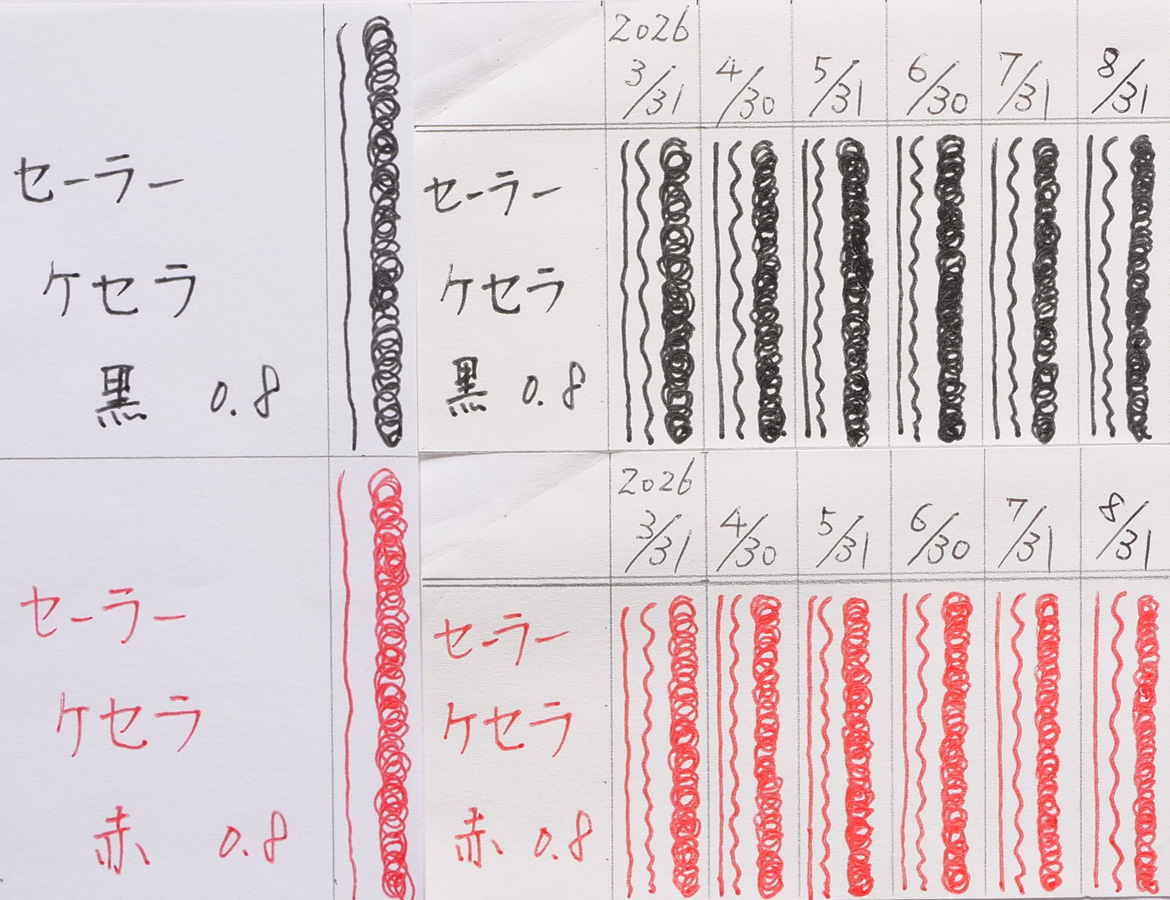 セーラー
ケセラ
黒 0.8
2026
3/31 4/30 5/31 6/30 7/31 8/31
セーラー
ケセラ
黒 0.8
セーラー
ケセラ
赤 0.8
2026
3/31 4/30 5/31 6/30 7/31 8/31
セーラー
ケセラ
赤 0.8